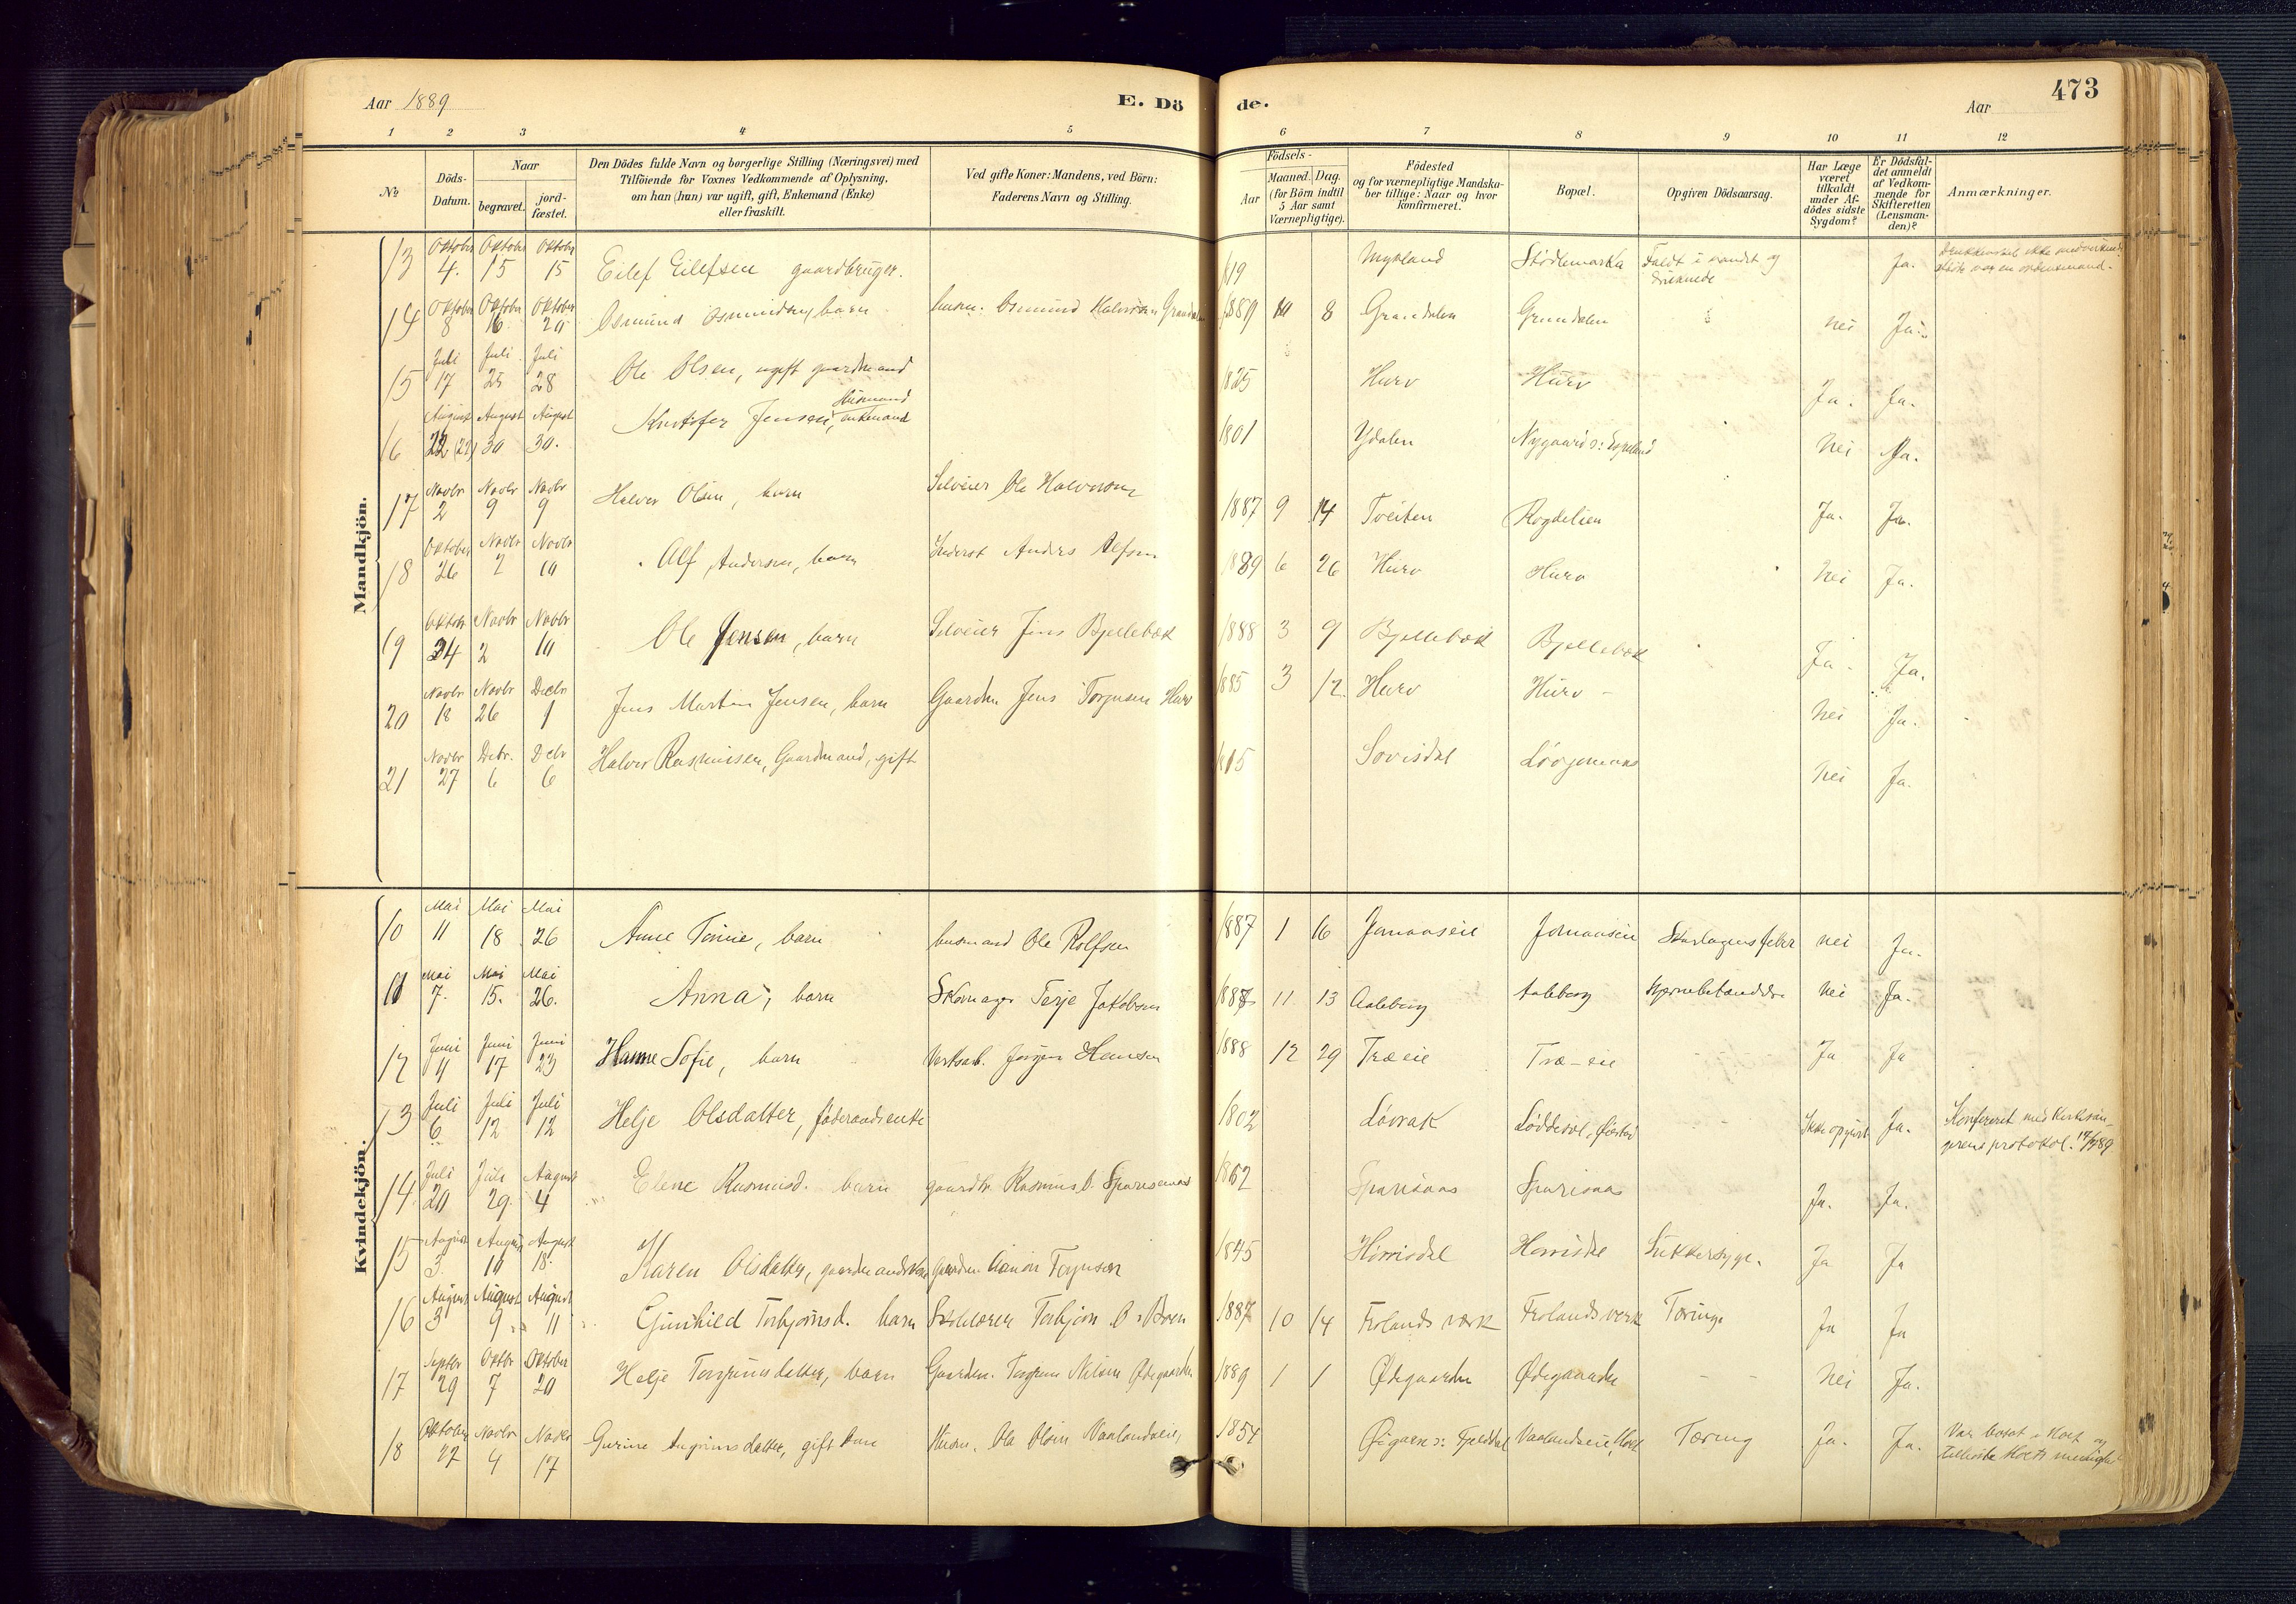 Aar 1889
E. Dö
de.
Aar
473
1 2 3 4 5 6 7 8 9 10 11 12
№
Döds-
Datum.
Naar
begravet.
jord-
fæstet.
Den Dödes fulde Navn og borgerlige Stilling (Næringsvei) med
Tilföiende for Voxnes Vedkommende af Oplysning,
om han (hun) var ugift, gift, Enkemand (Enke)
eller fraskilt.
Ved gifte Koner: Mandens, ved Börn:
Faderens Navn og Stilling.
Födsels-
Aar
Maaned. Dag.
(for Börn indtil
5 Aar samt
Værnepligtige).
Födested
og for værnepligtige Mandska-
ber tillige: Naar og hvor
konfirmeret.
Bopæl.
Opgiven Dödsaarsag.
Har Læge
været
tilkaldt
under Af-
dödes sidste
Sygdom?
Er Dödsfal-
det anmeldt
af Vedkom-
mende for
Skifteretten
(Lensman-
den)?
Anmærkninger.
Mandkjön.
13 Oktober 4. Oktober 15 Oktober 15 Eilef Eilefsen gaardbruger. 1819 Mykland Stødlemarka Faldt i vandet og druknede Ja.
14 Oktober 8 Oktober 16 Oktober 20 Osmund Osmundsen, barn husm. Osmund Halvorsen Grændalen 1889 10 8 Grændalen Grændalen nei Ja.
15 Juli 17 Juli 25 Juli 28 Ole Olsen, ugift gaardmand 1825 Hurv Hurv Ja. Ja.
16 August 22 (22) August 30 August 30. Kristofer Jensen, Husmand enkemand 1801 Ydalen Nygaard s: Espeland Nei Ja.
17 Novbr 2 Novbr 9 Novbr 9 Halvor Olsen, barn Selveier Ole Halvorsen 1887 9 14 Tveiten Rogdelien Ja. Ja.
18 Oktober 26 Novbr 2 Novbr 10 Alf Andersen, barn Inderst Anders Alfsen 1889 6 26 Hurv Hurv Nei Ja.
19 Oktbr 24 Novbr 2 Novbr 10 Ole Jensen, barn Selveier Jens Bjellebæk 1888 3 9 Bjellebæk Bjellebæk Ja. Ja.
20 Novbr 18 Novbr 26 Decbr 1 Jens Martin Jensen, barn Gaardm Jens Torjusen Hurv 1885 3 12 Hurv Hurv Nei Ja.
21 Novbr 27 Debr. 6 Debr 6 Halvor Rasmusen, Gaardmand, gift 1815 Sovisdal Nei Ja.
Kvindekjön.
10 Mai 11 Mai 18 Mai 26 Anne Tomie, barn husmand Ole Rolfsen 1887 1 16 Jomaaseie Jomaaseie Skarlagensfeber nei Ja.
11 Mai 7. Mai 15. Mai 26. Anna, barn Skomager Terje Jakobsen 1887 11 13 Aaleberg Aaleberg Hjernebetændelse Nei Ja.
12 Juni 11 Juni 17 Juni 23 Hanne Sofie, barn Verksarb. Jørgen Hansen 1888 12 29 Træeie Træ-eie Ja Ja
13 Juli 6 Juli 12 Juli 12 Helje Olsdatter, føderaadsenke 1802 Løvrak Løddesøl, Øiestad Ikke opgivet Ja. Konfereret med Kirkesan-
gerens protokol. 17/7 89
14. Juli 20 Juli 29. August 4 Elene Rasmusd. barn gaardbr. Rasmus O. Sparsaas 1862 Sparsaas Sparsaas Ja. Ja.
15 August 3. August 10 August 18. Karen Olsdatter, gaardmandskone Gaardm. Torjusen 1845 Hørrisdal Hørrisdal Sukkersyge. Ja Ja
16 August 3 August 9 August 11 Gunhild Torbjørnsd. barn Skolelærer Torbjørn O. Boen 1887 10 14 Frolands værk Frolands værk Tæring Ja Ja
17 Septbr 29 Oktbr 7 Oktober 20 Helje Torgrimsdatter, barn Gaardm. Torgrim Nilsen Ødegaarden 1889 1 1 Ødegaarden Ødegaarden Nei Ja.
18 Oktober 27 Novbr 4 Novbr 17 Gurine Angrimsdatter, gift kone Husm. Ole Olsen Vaalandseie, 1854 Øigarn s: Fjelddal Vaalandseie, Hovet Tæring Ja. Ja. Var bosat i Hovet og
tilhørte Hovets menighed